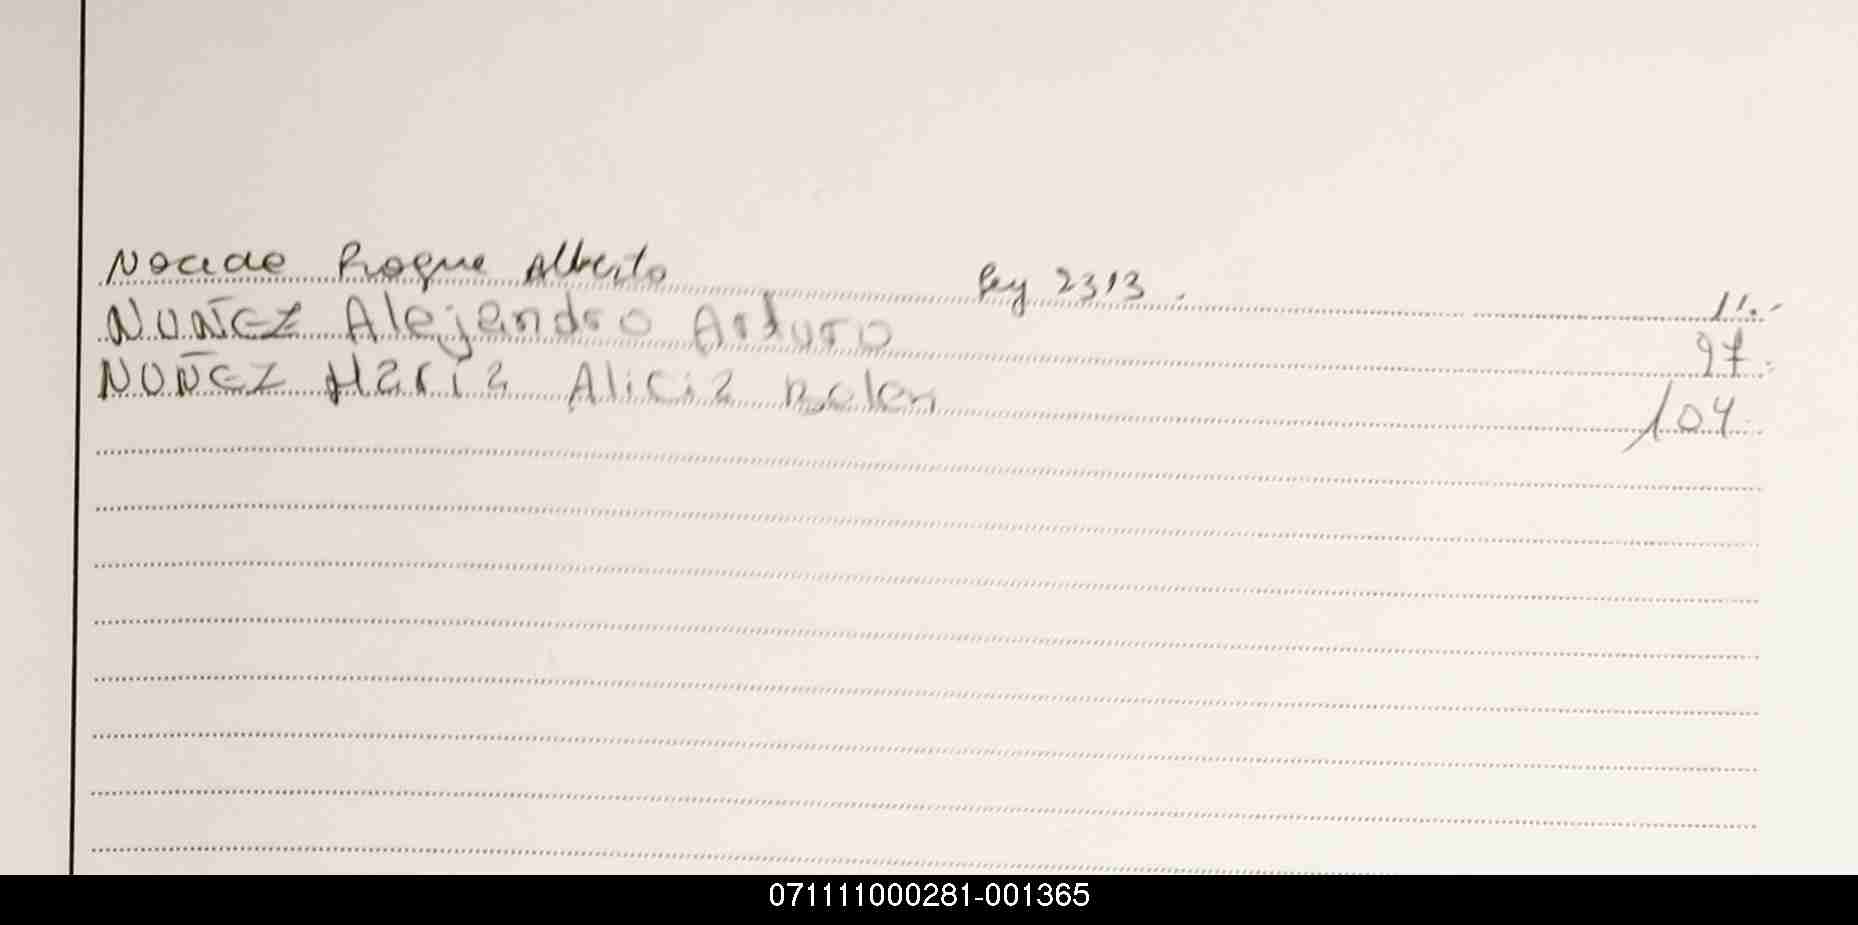 Nocide Roque Alberto Ley 2313. 11.-
NUÑEZ Alejandro Arturo 97.
NUÑEZ Maria Alicia Belen 104
071111000281-001365